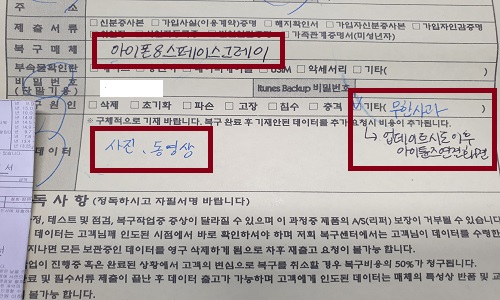 주 소
제출서류 □신분증사본 □가입사실(이용계약)증명 □해지확인서 □가입자신분증사본 □가입자인감증명
□가족관계증명서(미성년자)
복구매체 아이폰8스페이스그레이
부속물확인란 □USIM □악세서리 □기타( )
비밀번호 Itunes Backup 비밀번호
(단말기용)
구 원인 □삭제 □초기화 □파손 □고장 □침수 □충격 기타( 무한사과
※ 구체적으로 기재 바랍니다. 복구 완료 후 기재안된 데이터를 추가 요청시 비용이 추가됩니다.
↳ 업데이트시도이후
아이튠즈연결화면
데이터 사진, 동영상
독 사 항 (정독하시고 자필서명 바랍니다)
테스트 및 점검, 복구작업중 증상이 달라질 수 있으며 이 과정중 제품의 A/S(리퍼) 보장이 거부될 수 있습니다
데이터는 고객님께 인도된 시점에서 바로 확인하셔야 하며 저희 복구센터에서는 고객님이 데이터를 수령한
지나면 모든 보관중인 데이터를 영구 삭제하게 됨으로 차후 재출고 요청이 불가능 합니다.
업이 진행중 혹은 완료된 상황에서 고객의 변심으로 복구를 취소할 경우 복구비용의 50%가 청구됩니다.
료 및 필수서류 제출이 끝난 후 데이터 출고가 가능하며 고객에게 인도된 데이터는 매체의 특성상 반품 및 교